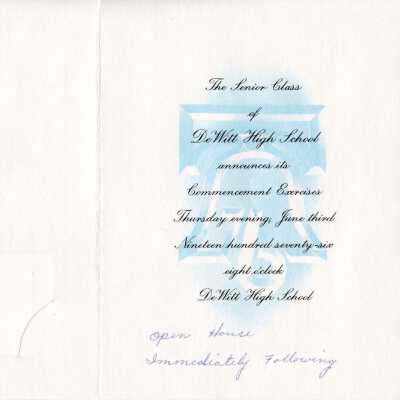 The Senior Class
of
DeWitt High School
announces its
Commencement Exercises
Thursday evening, June third
Nineteen hundred seventy-six
eight o'clock
DeWitt High School
Open House
Immediately Following